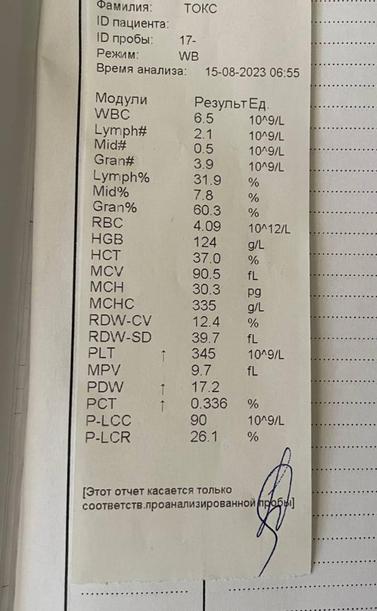 Фамилия: ТОКС
ID пациента:
ID пробы: 17-
Режим: WB
Время анализа: 15-08-2023 06:55
Модули Результ Ед.
WBC 6.5 10^9/L
Lymph# 2.1 10^9/L
Mid# 0.5 10^9/L
Gran# 3.9 10^9/L
Lymph% 31.9 %
Mid% 7.8 %
Gran% 60.3 %
RBC 4.09 10^12/L
HGB 124 g/L
HCT 37.0 %
MCV 90.5 fL
MCH 30.3 pg
MCHC 335 g/L
RDW-CV 12.4 %
RDW-SD 39.7 fL
PLT ↑ 345 10^9/L
MPV 9.7 fL
PDW ↑ 17.2
PCT ↑ 0.336 %
P-LCC 90 10^9/L
P-LCR 26.1 %
[Этот отчет касается только
соответств.проанализированной пробы]